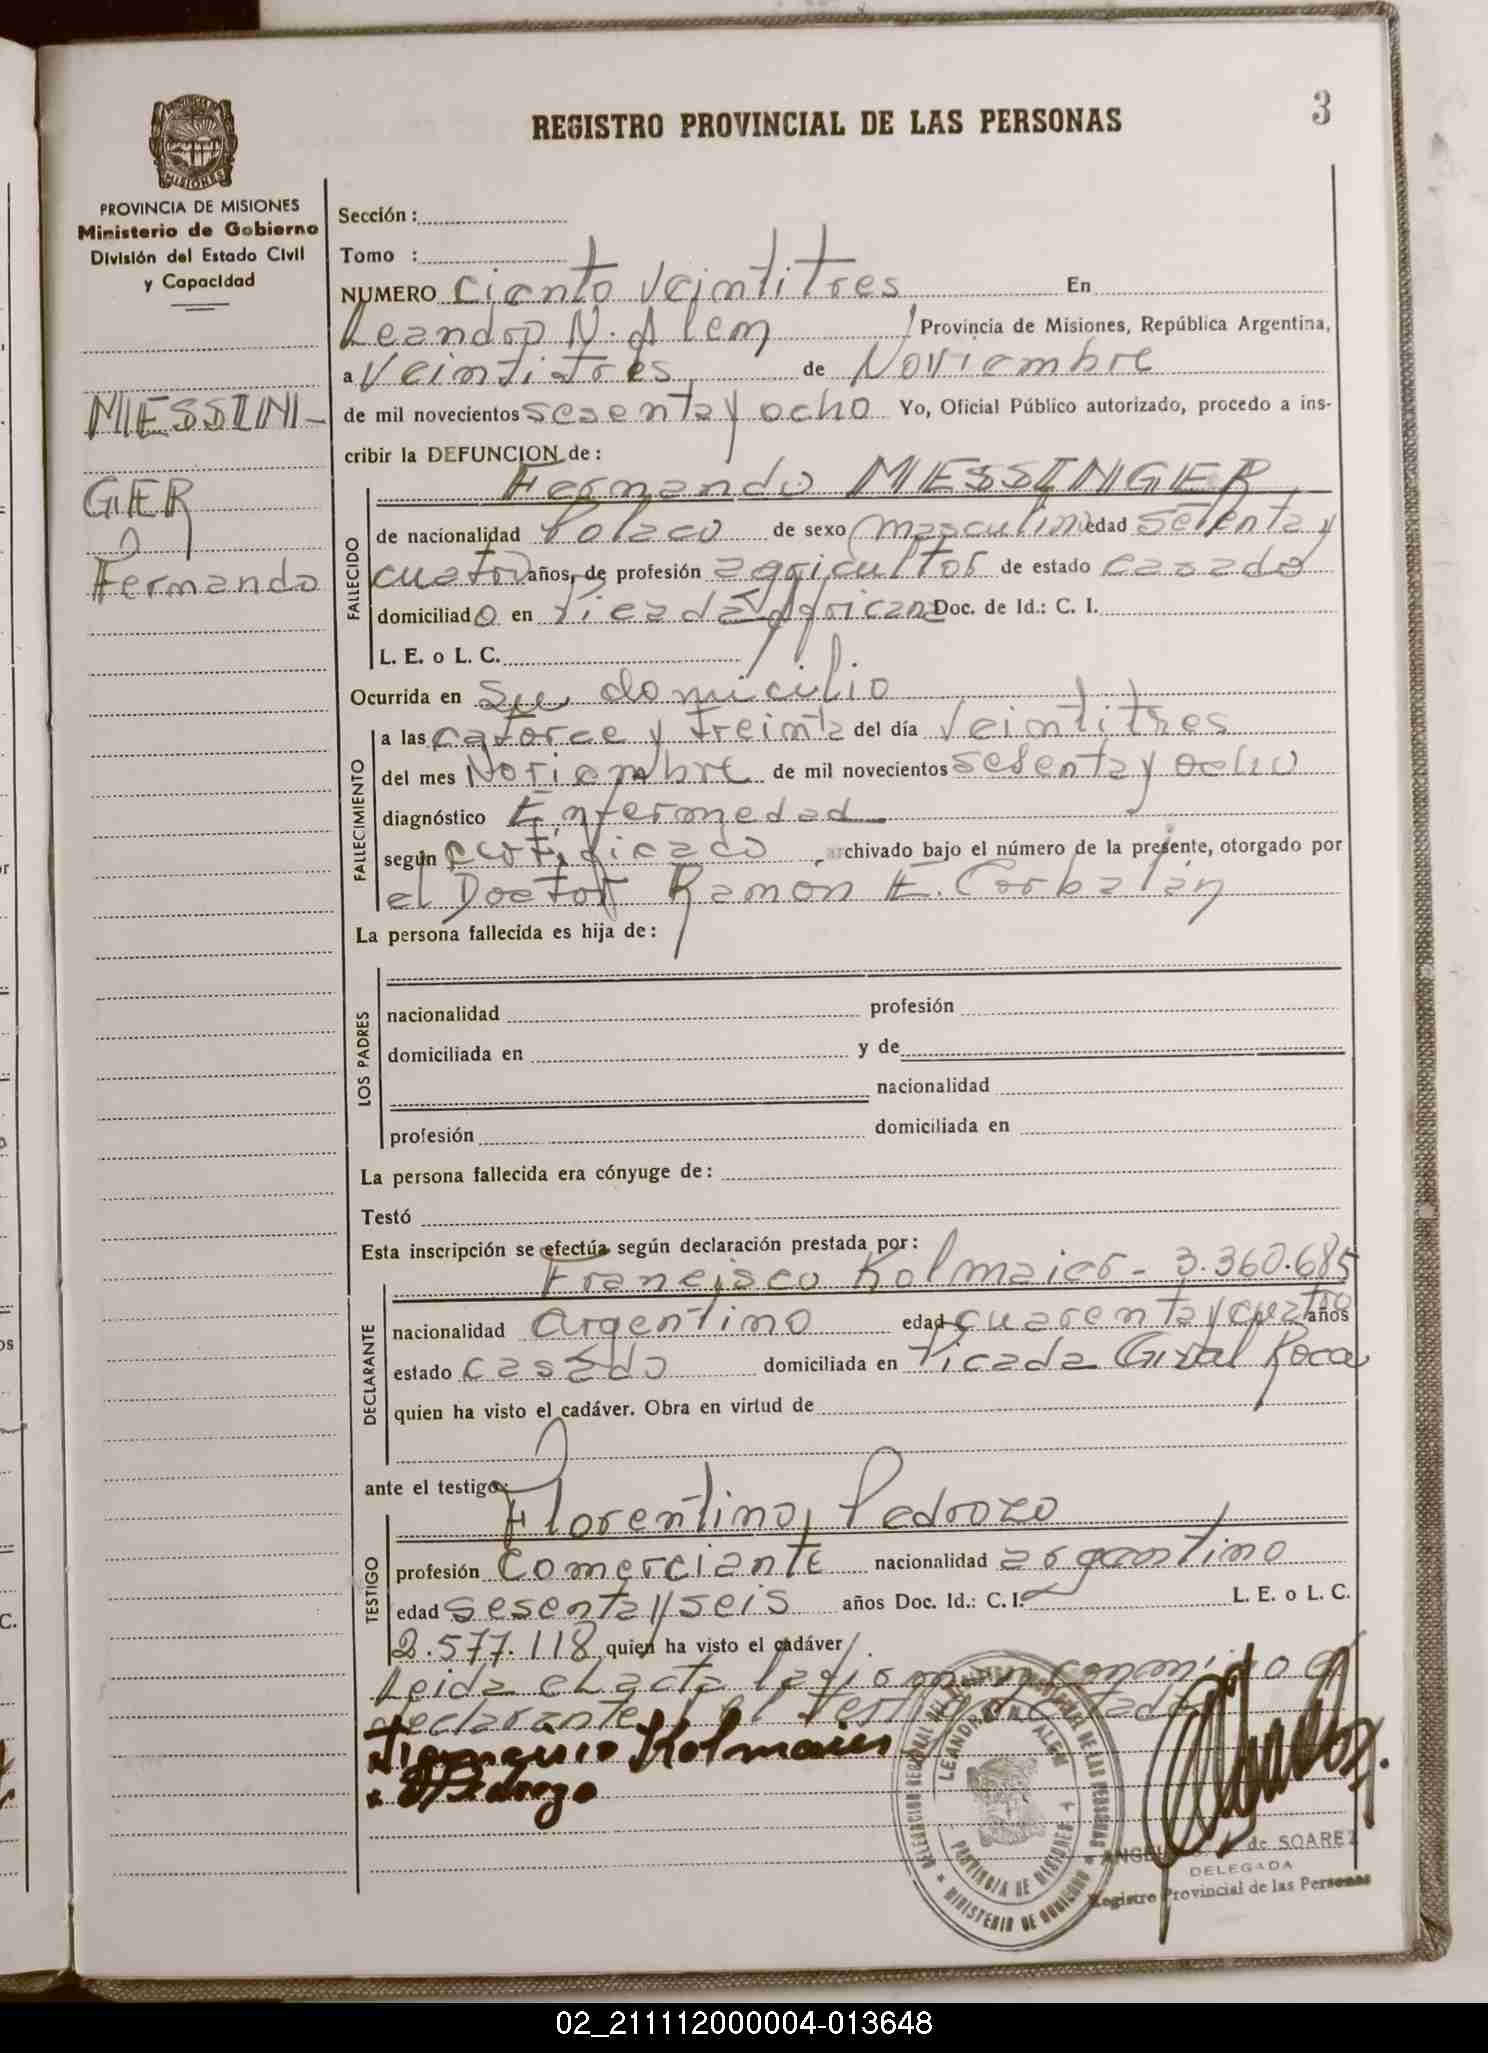 3
REGISTRO PROVINCIAL DE LAS PERSONAS
PROVINCIA DE MISIONES
Ministerio de Gobierno
División del Estado Civil
y Capacidad
MIESSIN-
GER
Fernando
Sección :
Tomo :
NUMERO Ciento Veintitres En
Leandro N. Alem Provincia de Misiones, República Argentina,
a Veintitres de Noviembre
de mil novecientos sesenta y ocho Yo, Oficial Público autorizado, procedo a ins-
cribir la DEFUNCION de :
Fernando MIESSINGER
FALLECIDO
de nacionalidad Polaco de sexo masculino edad setenta y
cuatro años, de profesión agricultor de estado casado
domiciliado en Picada Africana Doc. de Id.: C. I.
L. E. o L. C.
Ocurrida en su domicilio
FALLECIMIENTO
a las catorce y treinta del día Veintitres
del mes Noviembre de mil novecientos sesenta y ocho
diagnóstico Enfermedad
según certificado archivado bajo el número de la presente, otorgado por
el Doctor Ramón E. Corbalán
La persona fallecida es hija de :
LOS PADRES
nacionalidad profesión
domiciliada en y de
nacionalidad
profesión domiciliada en
La persona fallecida era cónyuge de :
Testó
Esta inscripción se efectúa según declaración prestada por :
Francisco Kolmaier - 3.360.685
DECLARANTE
nacionalidad argentino edad cuarenta y cuatro años
estado casado domiciliada en Picada Gral Roca
quien ha visto el cadáver. Obra en virtud de
ante el testigo:
Florentino Pedrozo
TESTIGO
profesión Comerciante nacionalidad argentino
edad sesenta y seis años Doc. Id.: C. I. L. E. o L. C.
2.577.118 quien ha visto el cadáver
Leida el acta la firman conmigo el
declarante y el testigo citado
Kolmaier
Pedrozo
DELEGACION REGIONAL
LEANDRO N. ALEM
PROVINCIA DE MISIONES
MINISTERIO DE GOBIERNO
de SOAREZ
DELEGADA
Registro Provincial de las Personas
02_211112000004-013648